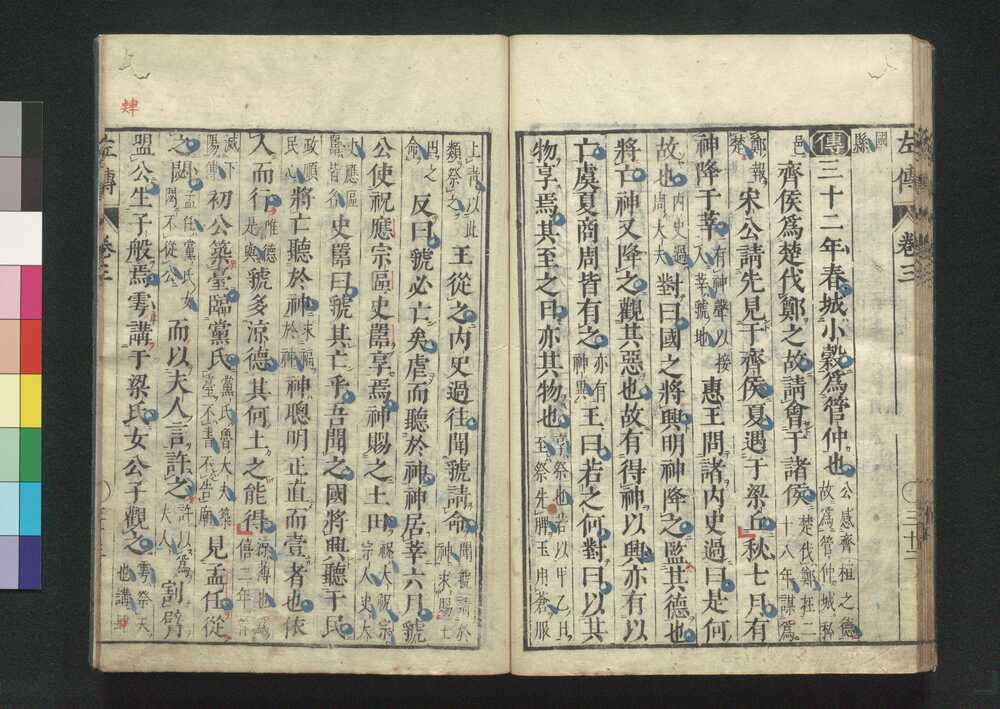 左傳 卷三 三十二
國
縣
傳 三十二年春城小穀爲管仲也 公感齊桓之德故爲管仲城私
邑 齊侯爲楚伐鄭之故請會于諸侯 楚伐鄭在二十八年謀爲
鄭報楚 宋公請先見于齊侯夏遇于梁丘秋七月有
神降于莘 有神聲以接人莘虢地 惠王問諸內史過曰是何
故也 內史過周大夫 對曰國之將興明神降之監其德也
將亡神又降之觀其惡也故有得神以興亦有以
亡虞夏商周皆有之 亦有神異 王曰若之何對曰以其
物享焉其至之日亦其物也 享祭也若以甲乙日至祭先脾玉用蒼服
上青以此類祭之 王從之內史過往聞虢請命 聞虢請於神求賜土
田之命 反曰虢必亡矣虐而聽於神神居莘六月虢
公使祝應宗區史嚚享焉神賜之土田 祝大祝宗宗人史大
史應區嚚皆名 史嚚曰虢其亡乎吾聞之國將興聽于民
政順民心 將亡聽於神 求福於神 神聰明正直而壹者也依
人而行 唯德是與 虢多涼德其何土之能得 涼薄也爲僖二年晉
滅下陽傳 初公築臺臨黨氏 黨氏魯大夫築臺不書不告廟 見孟任從
之閟 孟任黨氏女閟不從公 而以夫人言許之 許以爲夫人 割臂
盟公生子般焉雩講于梁氏女公子觀之 雩祭天也講肄
左傳 卷三
肄